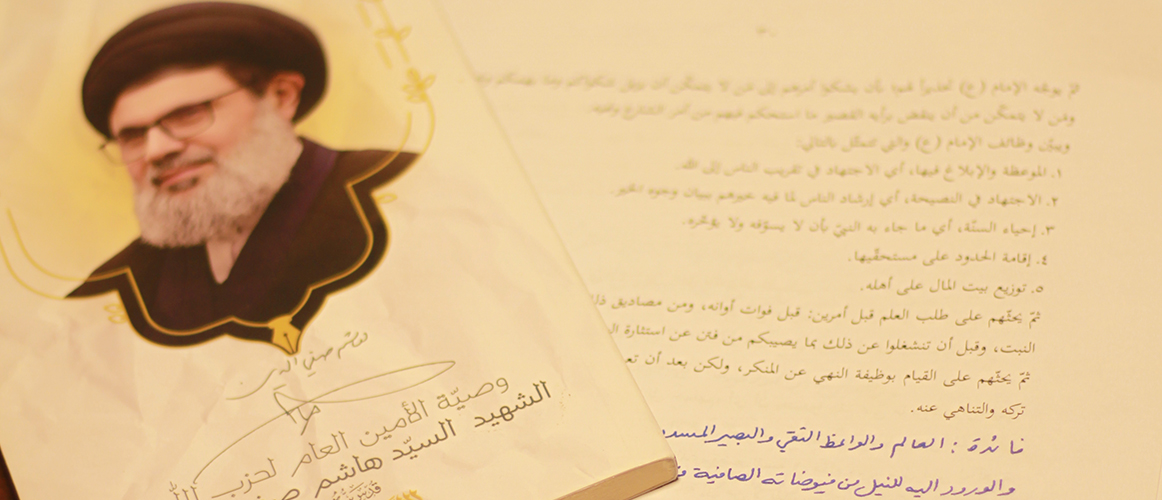 ثمّ يوجّه الإمام (ع) تحذيراً لهم بأن يشكوا أمرهم إلى من لا يتمكّن أن يزيل شكواكم
ومن لا يتمكّن من أن ينقض برأيه القصير ما استحكم فيهم من أمر
ويبيّن وظائف الإمام (ع) والتي تتمثّل بالتالي:
١. الموعظة والإبلاغ فيها، أي الاجتهاد في تقريب الناس إلى الله.
٢. الاجتهاد في النصيحة، أي إرشاد الناس لما فيه خيرهم ببيان وجوه الخير.
٣. إحياء السنّة، أي ما جاء به النبيّ بأن لا يسوّفه ولا يؤخّره.
٤. إقامة الحدود على مستحقّيها.
٥. توزيع بيت المال على أهله.
ثمّ يحثّهم على طلب العلم قبل أمرين: قبل فوات أوانه، ومن مصاديق
النبت، وقبل أن تنشغلوا عن ذلك بما يصيبكم من فتن عن استثارة
ثمّ يحثّهم على القيام بوظيفة النهي عن المنكر، ولكن بعد أن
تركه والتناهي عنه.
فائدة: العالم والواعظ التقي والبصير المسدد
والورود اليه للنيل من فيوضاته الصافية
هاشم صفي الدين
وصيّة الأمين العام لحزب الله
الشهيد السيّد هاشم